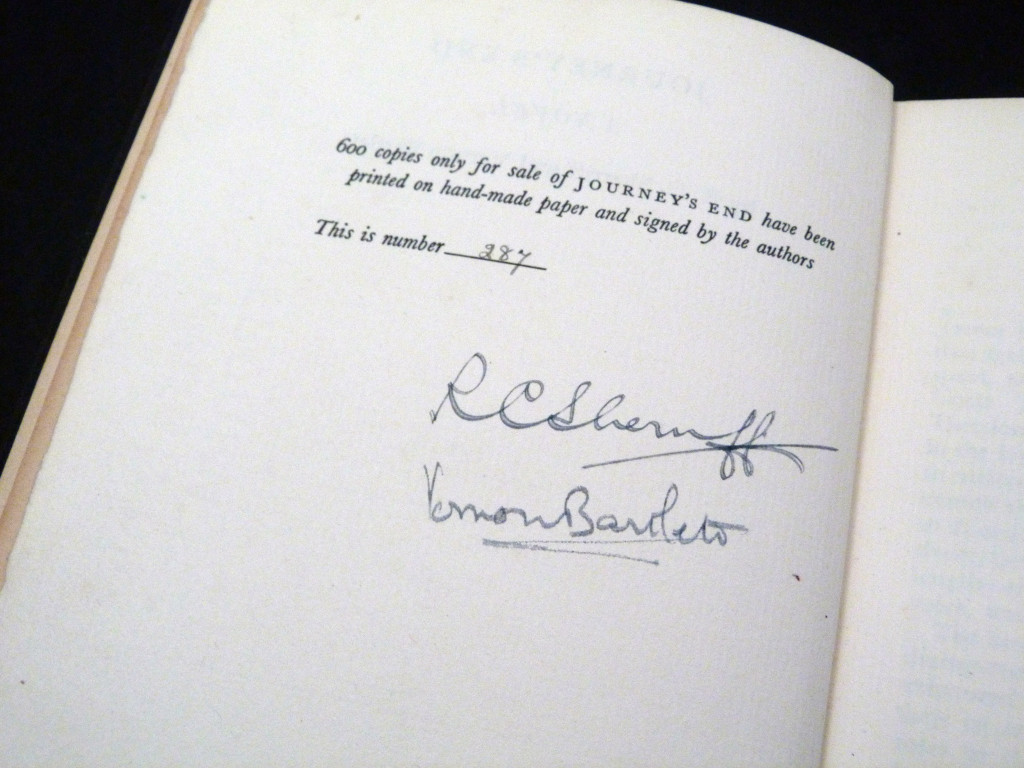 600 copies only for sale of JOURNEY'S END have been
printed on hand-made paper and signed by the authors
This is number 287
R C Sherriff
Vernon Bartlett